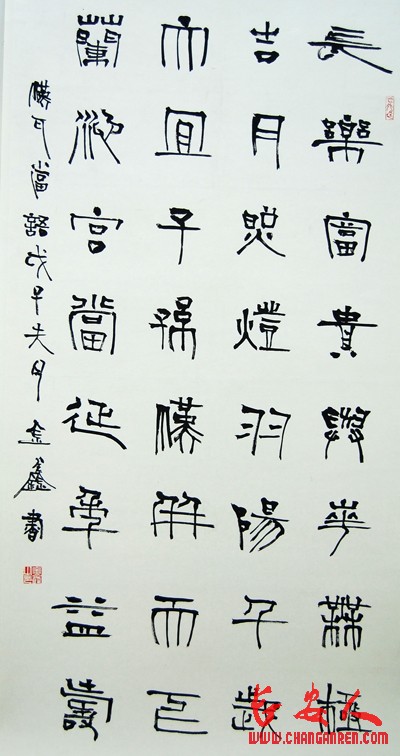 長樂富貴與華無極
吉月照燈羽陽千歲
大宜子孫漢并天下
蘭池宮當延年益壽
漢瓦當 戊子 月金鑫書
长安人
WWW.CHANGANREN.COM